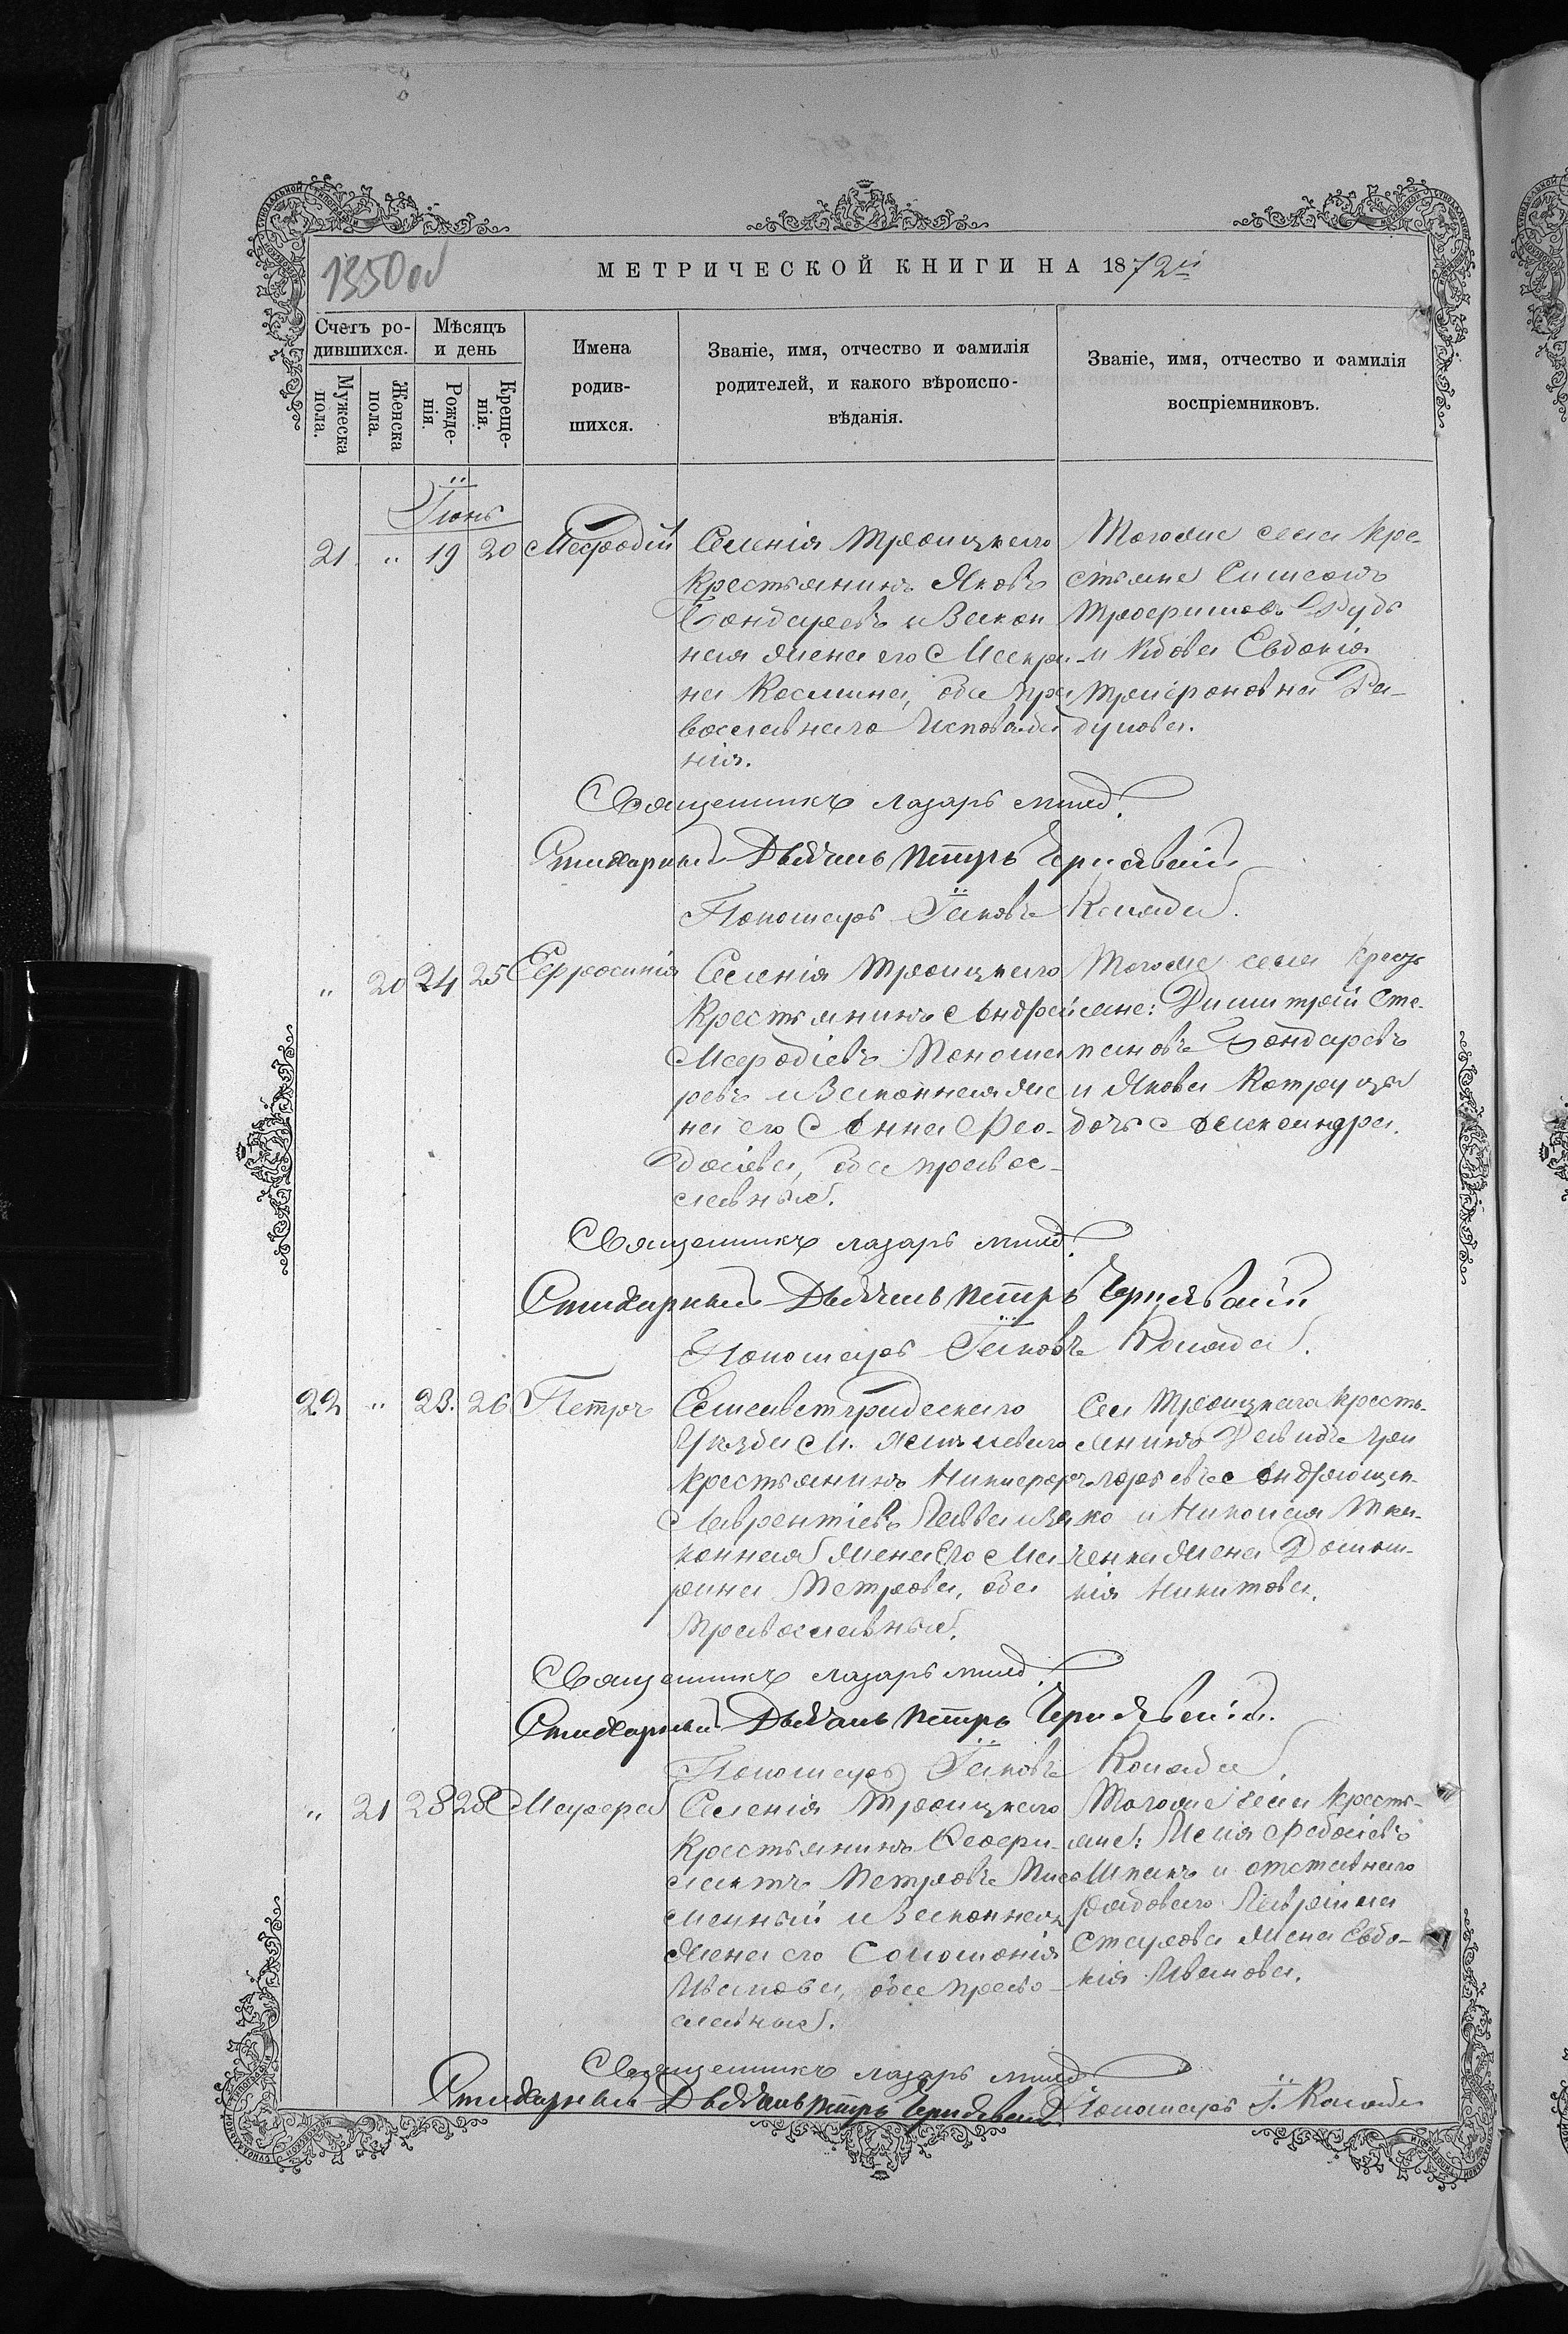 1350 об
МЕТРИЧЕСКОЙ КНИГИ НА 1872й
Счетъ родившихся.
Мужеска пола.
Женска пола.
Мѣсяцъ и день
Рожденія.
Крещенія.
Имена родившихся.
Званіе, имя, отчество и фамилія
родителей, и какого вѣроиспо-
вѣданія.
Званіе, имя, отчество и фамилія
воспріемниковъ.
Іюнь
21 " 19 20 Мефодій
Селенія Троицкаго
крестьянинъ Яковъ
Бондаревъ и Закон
ная жена его Макри-
на Космина, оба пра
вославнаго Исповѣда
нія.
Тогоже села кре-
стьяне Симеонъ
Трофимовъ
и вдова Евдокія
Трифоновна Ра-
дулова.
Священникъ Лазарь
Стихарный Дьячекъ Петръ Чернявскій
Пономарь Іаковъ Коляда.
" 20 24 25 Ефросинія
Селенія Троицкаго
крестьянинъ Андрей
Мефодіевъ Понома
ревъ и Законная же
на его Анна Фео-
досіева, оба правос-
лавные.
Тогоже села кресть
яне: Димитрій Сте-
пановъ Бондаревъ
и Якова Катруци
дочь Александра.
Священникъ Лазарь
Стихарный Дьячекъ Петръ Чернявскій
Пономарь Іаковъ Коляда.
22 " 23. 26 Петръ
Елисаветградскаго
Уѣзда м.
крестьянинъ Никифоръ
Лаврентіевъ и За
конная жена его Ма
рина Петрова, оба
Православные.
Села Троицкаго кресть-
янинъ Давидъ Гри
горьевъ Андрющен-
ко и Николая Тка-
ченка жена Домни-
кія Никитова.
Священникъ Лазарь
Стихарный Дьячекъ Петръ Чернявскій.
Пономарь Іаковъ Коляда.
" 21 28 28 Мавра
Селенія Троицкаго
крестьянинъ Феофи-
лактъ Петровъ Пись
менный и Законная
жена его Соломонія
Иванова, оба право-
славные.
Тогоже села кресть-
яне: Илія Федосіевъ
Шпакъ и отставнаго
рядоваго Гавріила
Старова жена Евдо-
кія Иванова.
Священникъ Лазарь
Стихарный Дьячекъ Петръ Чернявскій Пономарь І. Коляда